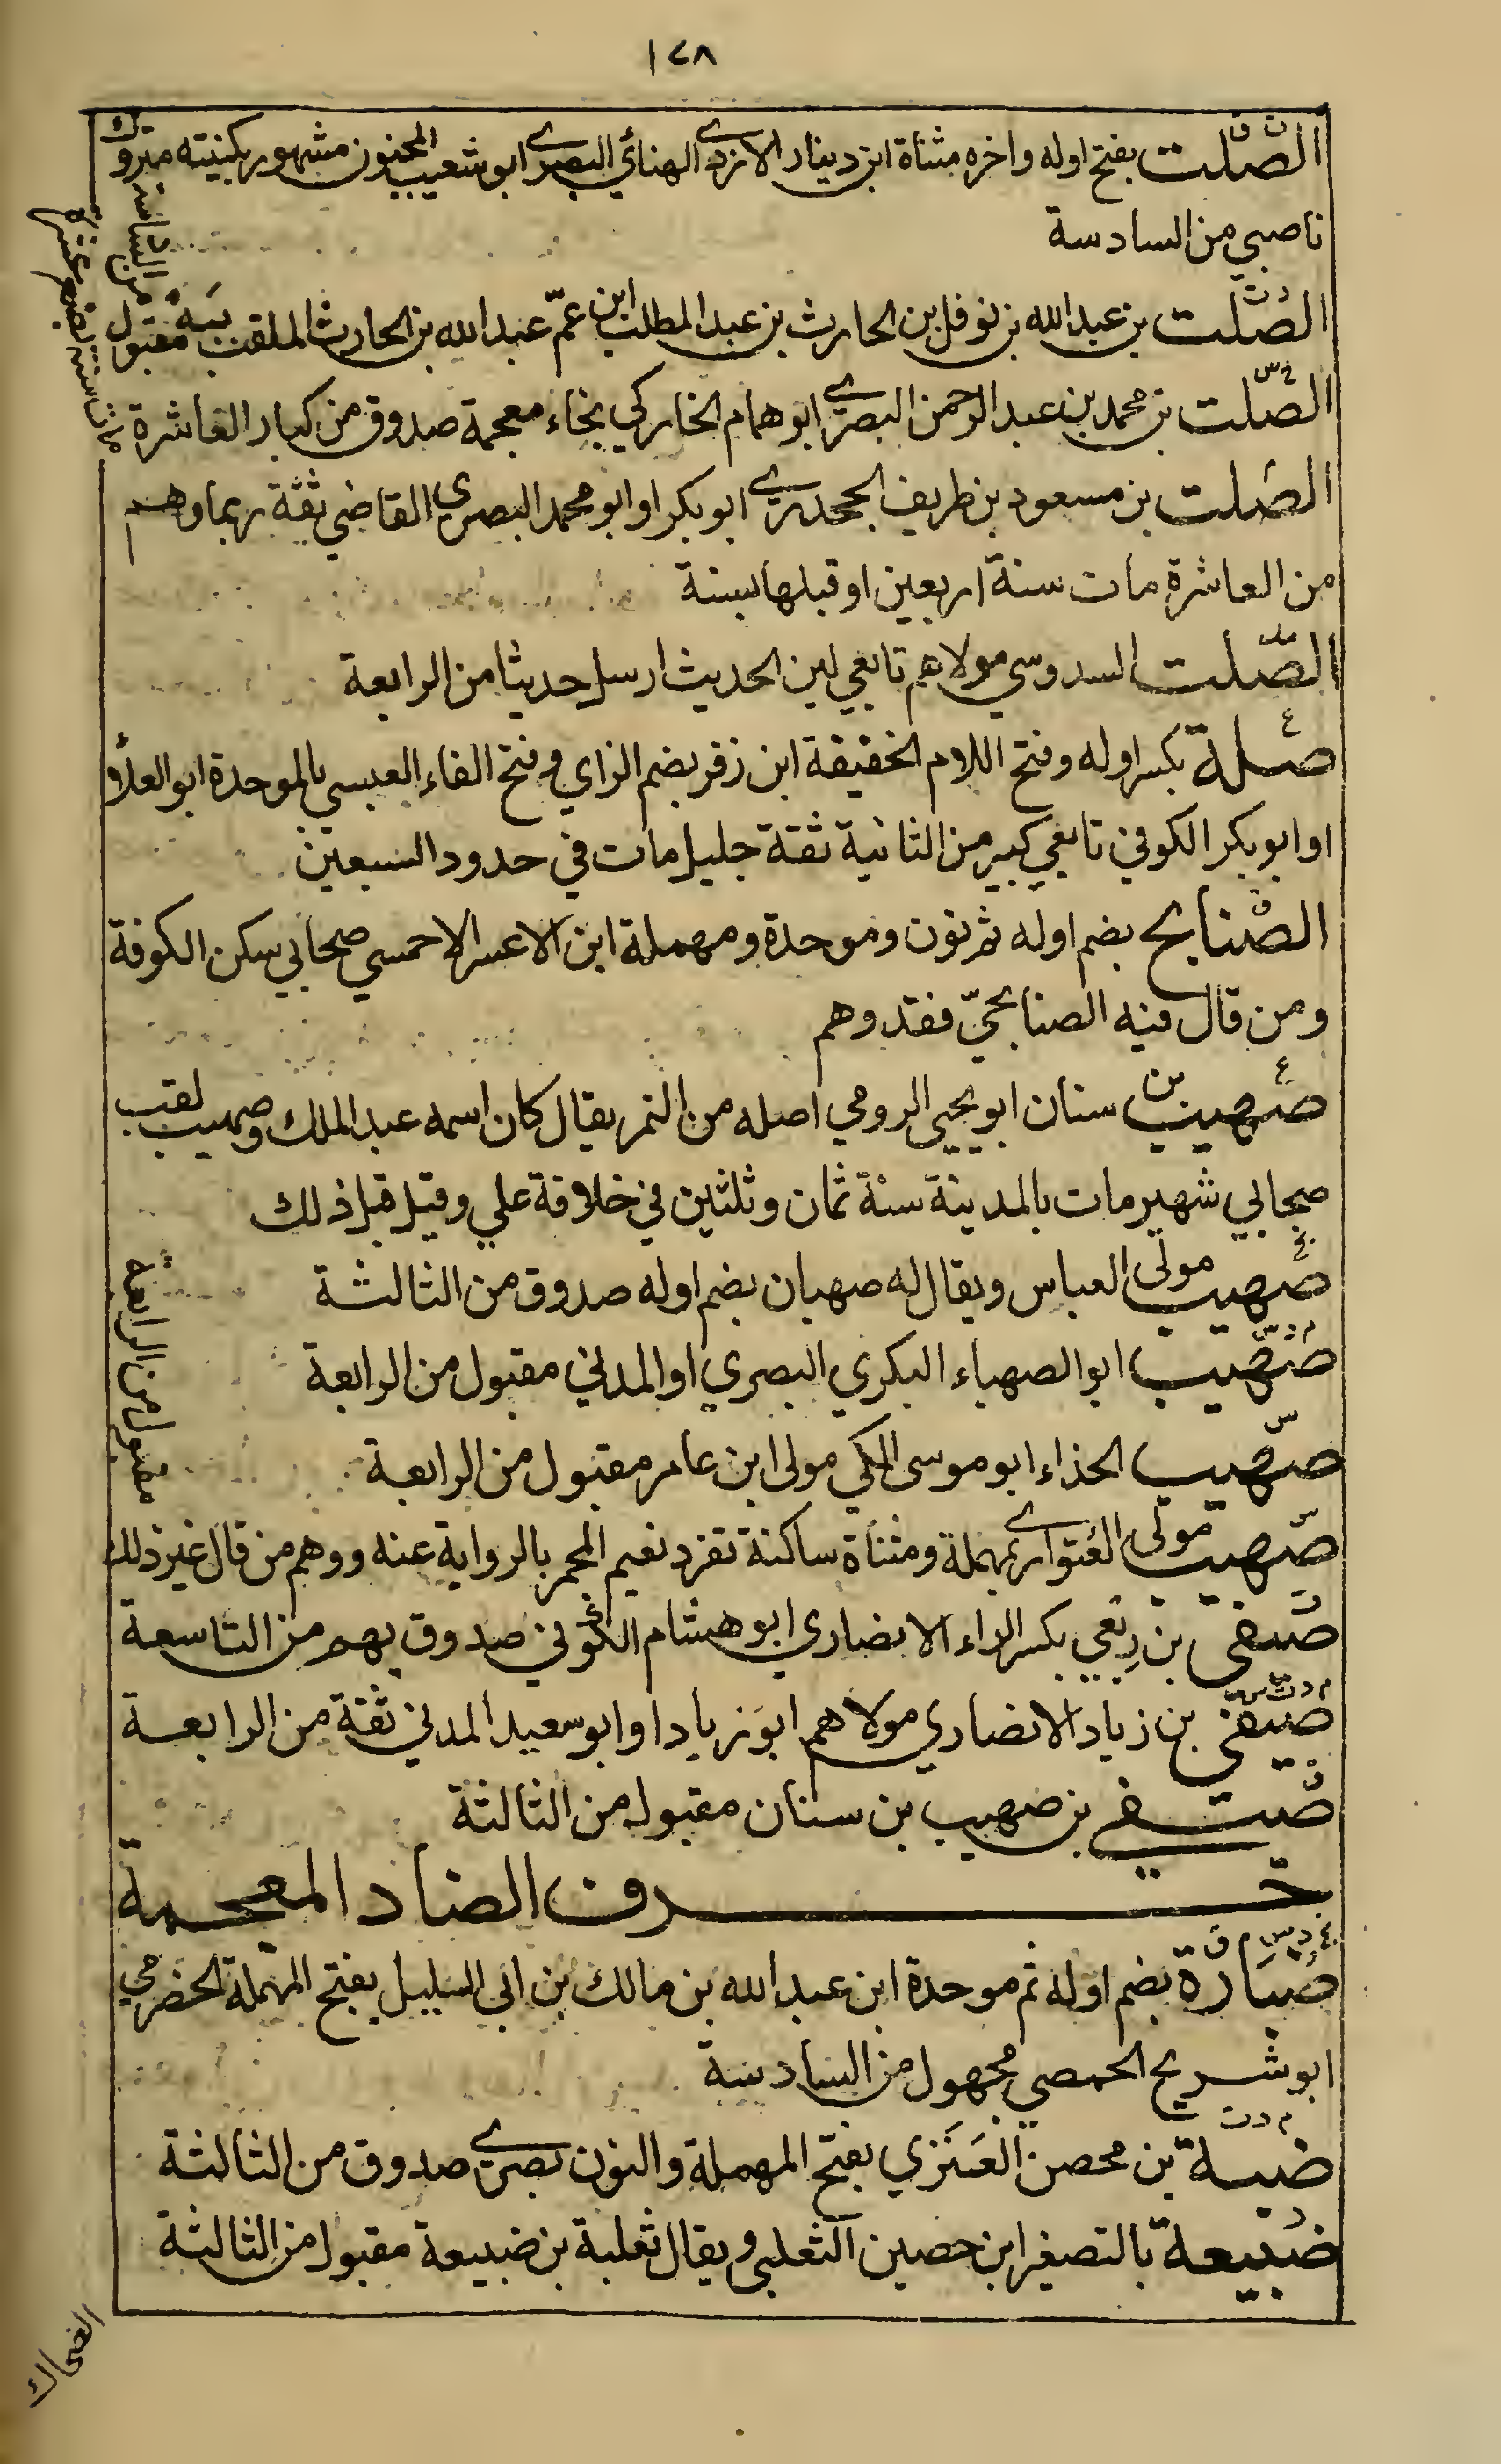 ١٤٨
ت ق
الصلت بفتح اوله واخره مثناة ابن دينار الازدي الهنائي البصري ابو شعيب المجنون مشهور بكنيته متروك
ناصبي من السادسة
د ت
الصلت بن عبد الله بن نوفل بن الحارث بن عبد المطلب ابن عمّ عبد الله بن الحارث الملقب ببه مقبول
من السادسة
خ س
الصّلت بن محمد بن عبد الرحمن البصري ابو همام الخاركي بخاء معجمة صدوق من كبار العاشرة
مات سنة بضع عشرة
م
الصلت بن مسعود بن طريف الجحدري ابو بكر او ابو محمد البصري القاضي ثقة ربما وهم
من العاشرة مات سنة اربعين او قبلها بسنة
مد
الصّلت السدوسي مولاهم تابعي لين الحديث ارسل حديثا من الرابعة
ع
صلة بكسر اوله وفتح اللام الخفيفة ابن زفر بضم الزاي وفتح الفاء العبسي بالموحدة ابو العلاء
او ابو بكر الكوفي تابعي كبير من الثانية ثقة جليل مات في حدود السبعين
ق
الصنابح بضم اوله ثم نون وموحدة ومهملة ابن الاعسر الاحمسي صحابي سكن الكوفة
ومن قال فيه الصنابحيّ فقد وهم
ع
صهيب بن سنان ابو يحيى الرومي اصله من النمر يقال كان اسمه عبد الملك وصهيب لقب
صحابي شهير مات بالمدينة سنة ثمان وثلثين في خلافة علي وقيل قبل ذلك
بخ
صهيب مولى العباس ويقال له صهبان بضم اوله صدوق من الثالثة
م د س
صهيب ابو الصهباء البكري البصري او المدني مقبول من الرابعة
س
صهيب الحذاء ابو موسى المكي مولى ابن عامر مقبول من الرابعة
س
صهيب مولى العُتواري بمهملة ومثناة ساكنة تفرد نعيم المجمر بالرواية عنه ووهم من قال غير ذلك
مقبول من الرابعة
ت
صيفي بن رِبعي بكسر الراء الانصاري ابو هشام الكوفي صدوق يهم من التاسعة
م د ت س
صيفي بن زياد الانصاري مولاهم ابو زياد او ابو سعيد المدني ثقة من الرابعة
ق
صيفي بن صهيب بن سنان مقبول من الثالثة
حرف الضاد المعجمة
بخ د س ق
ضبارة بضم اوله ثم موحدة ابن عبد الله بن مالك بن ابي السليل بفتح المهملة الحضرمي
ابو شريح الحمصي مجهول من السادسة
م د ت
ضبة بن محصن العَنَزي بفتح المهملة والنون بصري صدوق من الثالثة
د
ضبيعة بالتصغير ابن حصين الثعلبي ويقال ثعلبة بن ضبيعة مقبول من الثالثة
الضحاك